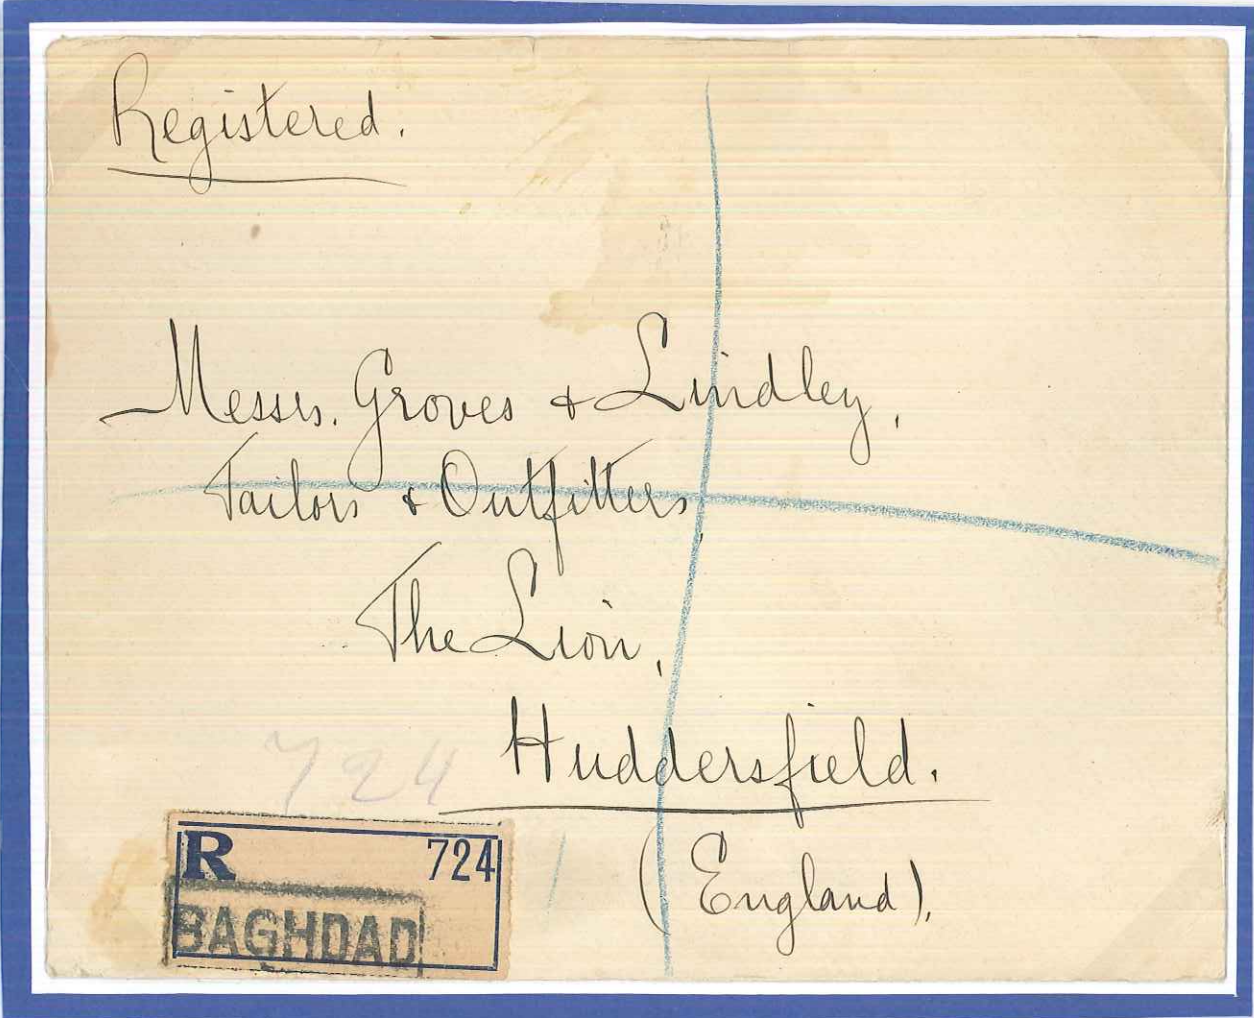 Registered.
Messrs. Groves & Lindley,
Tailors & Outfitters,
The Lion,
Huddersfield.
(England).
724
R 724
BAGHDAD